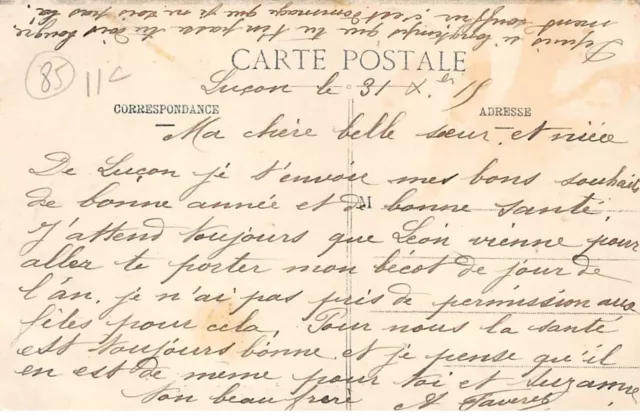 Depuis si longtemps que tu
mand souffrir c'est dommage que je ne sois pas
là.
CARTE POSTALE
85
11c
Luçon le 31 Xbr 15
CORRESPONDANCE
ADRESSE
Ma chère belle sœur et nièce
De Luçon je t'envoie mes bons souhaits
de bonne année et de bonne santé.
M
J'attend toujours que Léon vienne pour
aller te porter mon bécot de jour de
l'an, je n'ai pas pris de permission aux
fêtes pour cela. Pour nous la santé
est toujours bonne et je pense qu'il
en est de meme pour toi et Suzanne
Ton beau frère